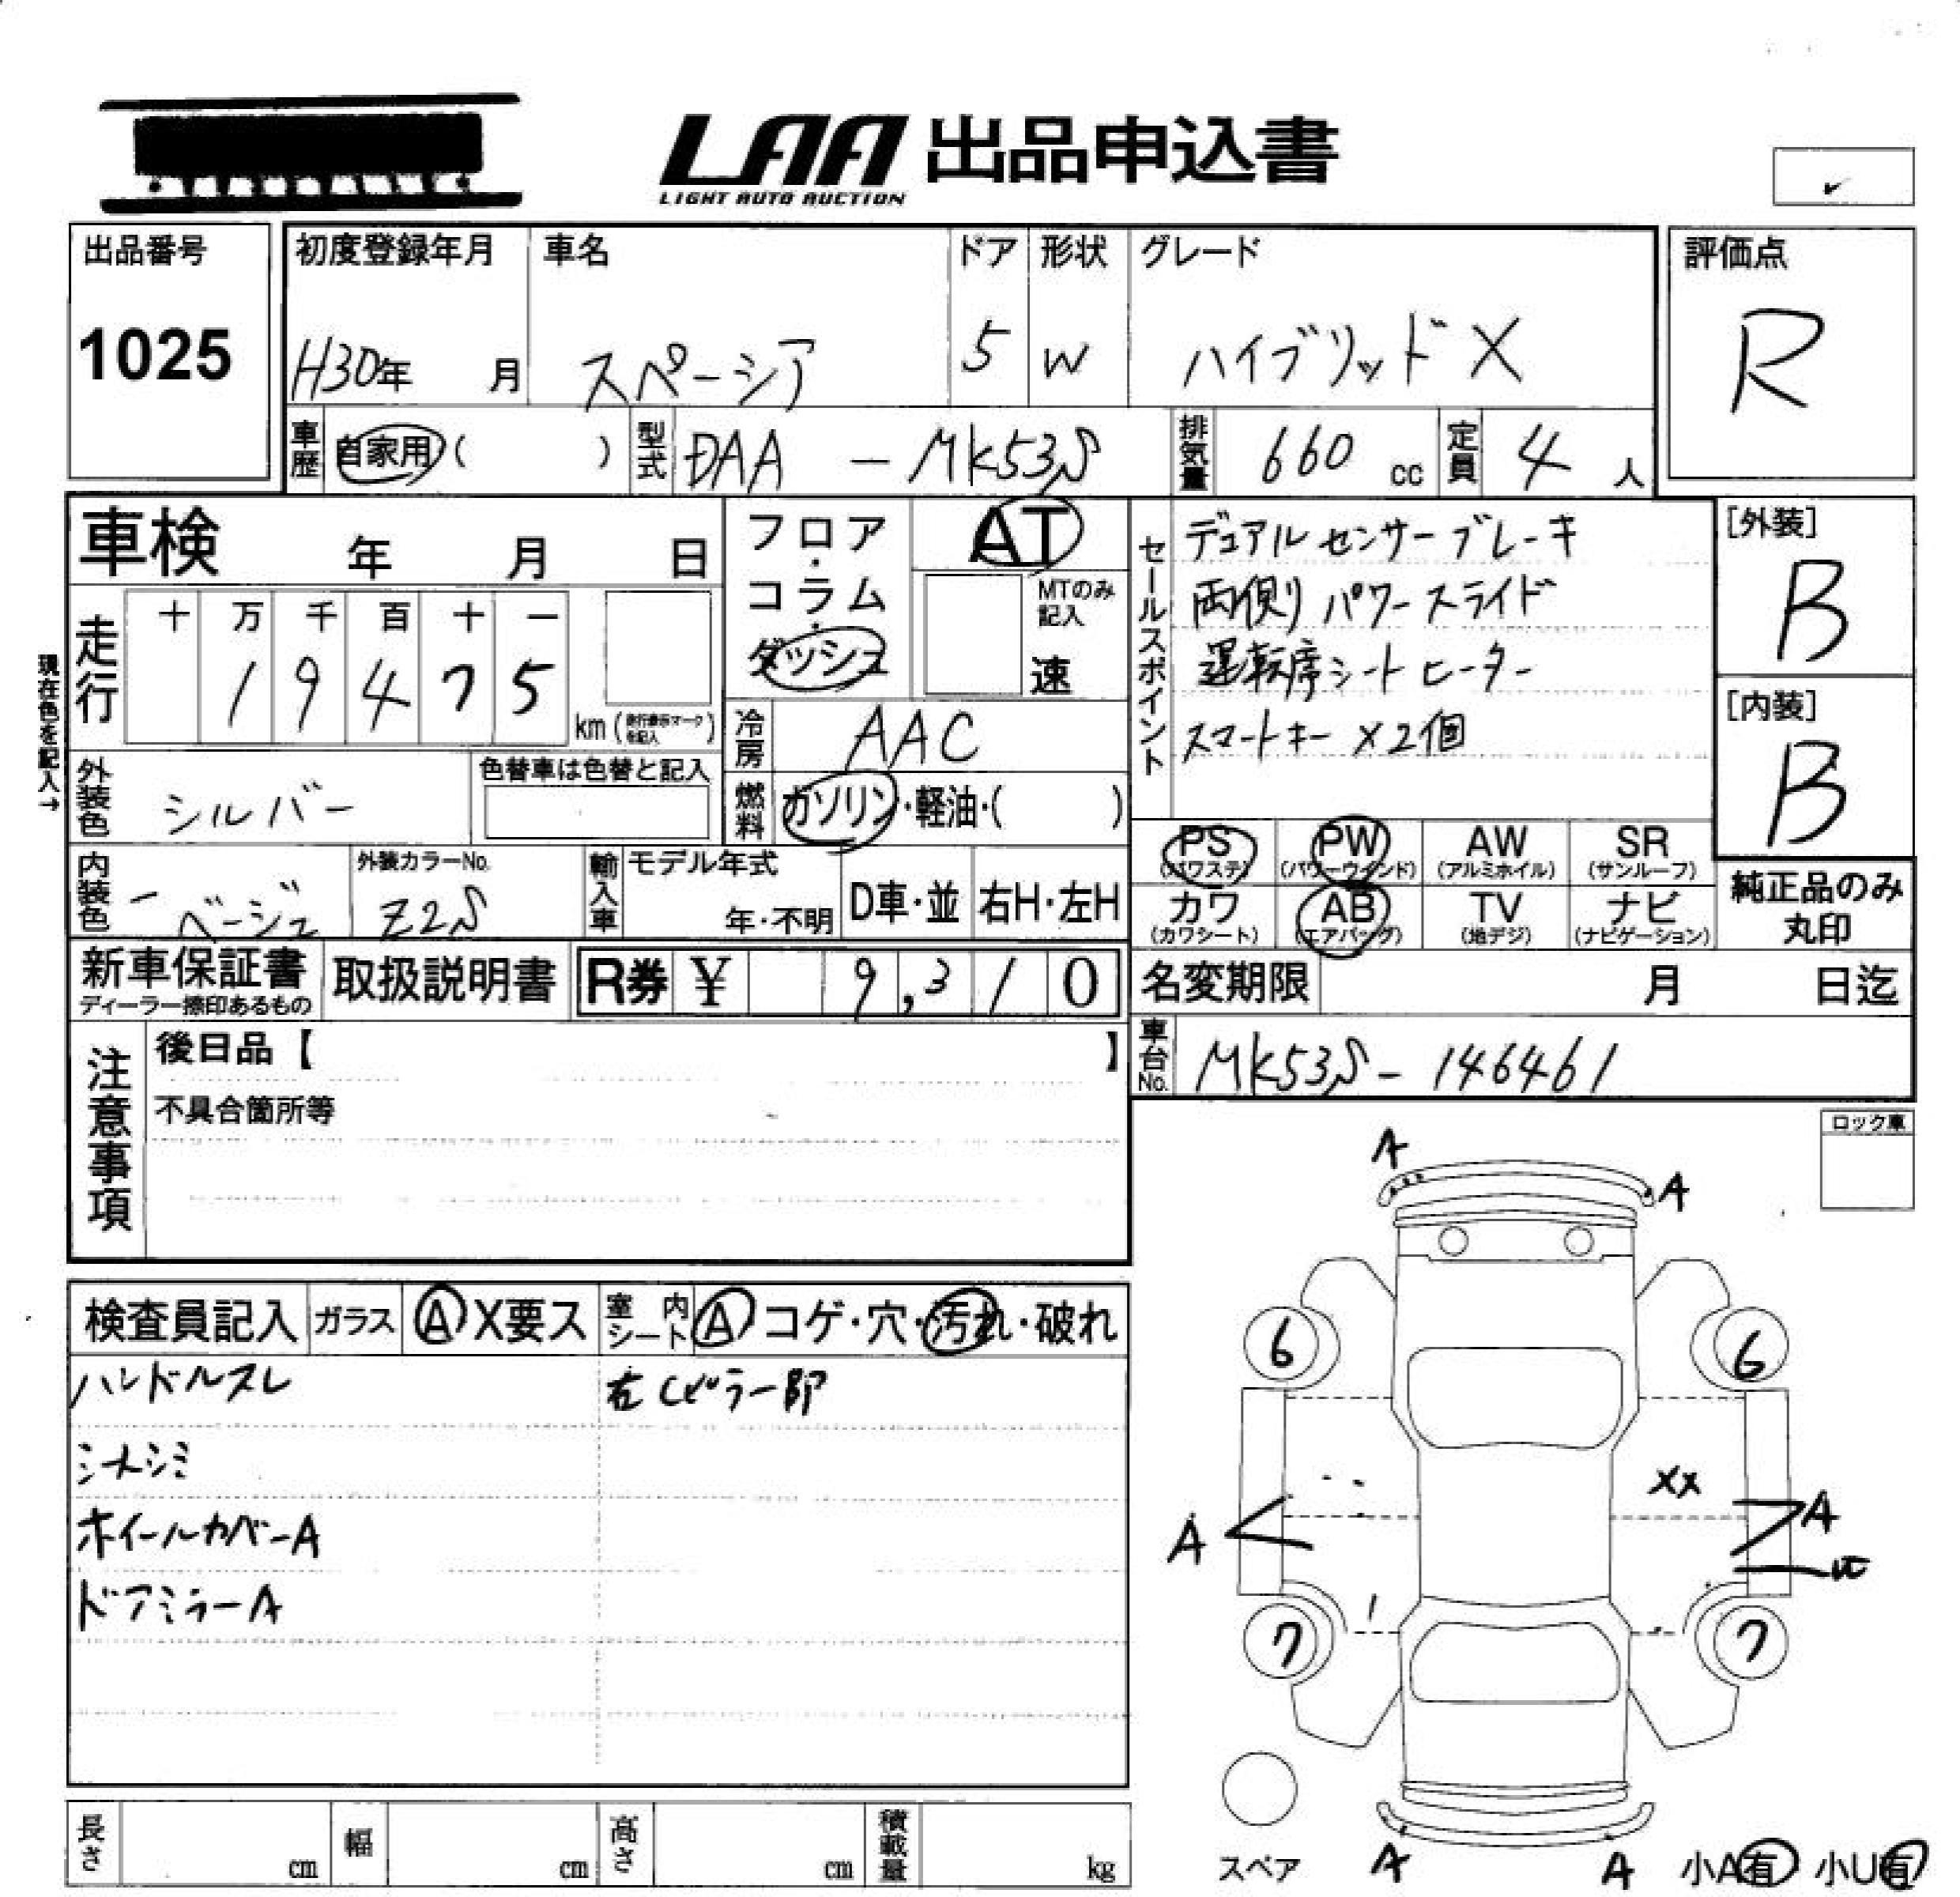 LAA 出品申込書
LIGHT AUTO AUCTION
出品番号
1025
初度登録年月
H30年 月
車名
スペーシア
ドア
5
形状
W
グレード
ハイブリッドX
評価点
R
車歴 自家用 ( )
型式 DAA - MK53S
排気量 660 cc
定員 4 人
車検 年 月 日
フロア・コラム・ダッシュ
AT
MTのみ記入
速
セールスポイント
デュアルセンサーブレーキ
両側パワースライド
運転席シートヒーター
スマートキー×2個
[外装]
B
[内装]
B
現在色を記入→
走行
十 万 千 百 十 一
1 9 4 7 5
km (走行表示マークを記入)
冷房 AAC
外装色 シルバー
色替車は色替と記入
燃料 ガソリン・軽油・( )
PS (パワステ)
PW (パワーウインド)
AW (アルミホイル)
SR (サンルーフ)
カワ (カワシート)
AB (エアバッグ)
TV (地デジ)
ナビ (ナビゲーション)
純正品のみ丸印
内装色 ベージュ
外装カラーNo. Z2S
輸入車
モデル年式
年・不明
D車・並
右H・左H
新車保証書
ディーラー捺印あるもの
取扱説明書
R券 ¥ 9,310
名変期限 月 日迄
車台No. MK53S-146461
注意事項
後日品【 】
不具合箇所等
ロック車
検査員記入
ガラス A X要ス
室内シート A コゲ・穴・汚れ・破れ
ハンドルスレ
右Cピラー部
シートシミ
ホイールカバーA
ドアミラーA
A
A
6
6
XX
A
A
7
7
スペア
A
A
小A有 小U有
長さ cm
幅 cm
高さ cm
積載量 kg